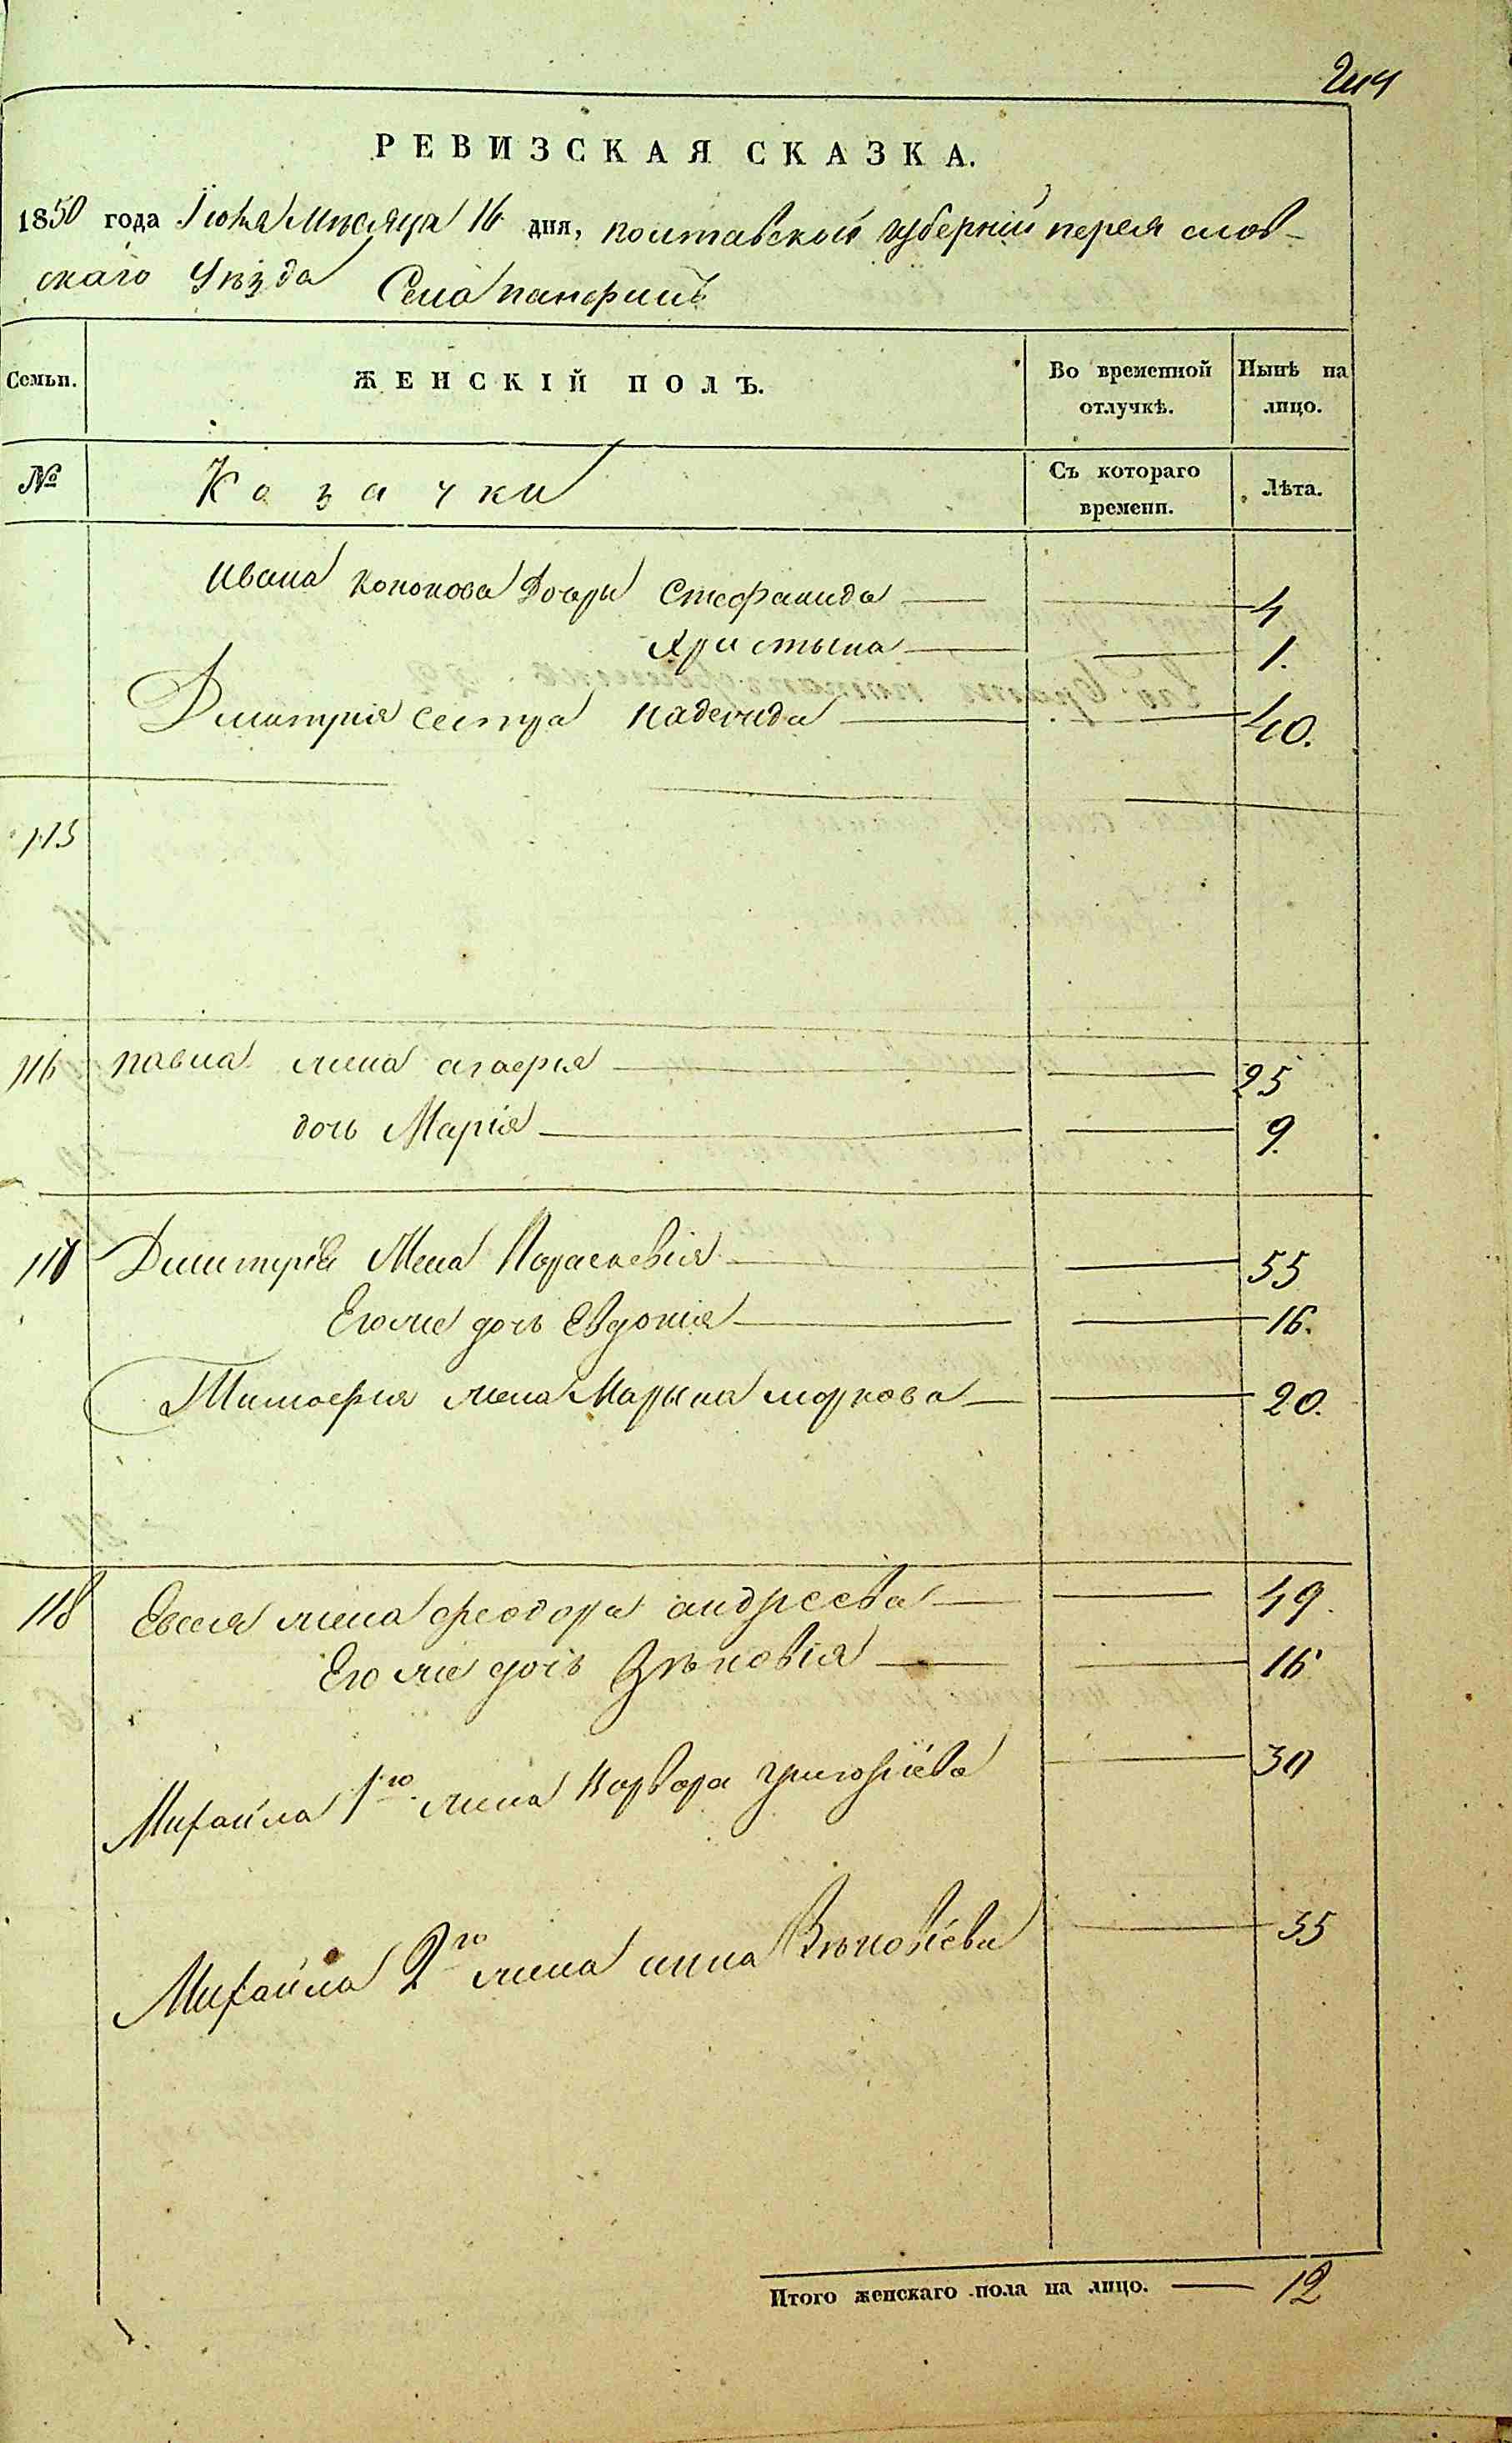 244
РЕВИЗСКАЯ СКАЗКА.
1850 года Июня Мѣсяца 16 дня, полтавской губерніи переяслов-
скаго Уѣзда Села панфилъ
Семьи.
ЖЕНСКІЙ ПОЛЪ.
Во временной отлучкѣ.
Нынѣ на лицо.
№
Козачки
Съ котораго времени.
Лѣта.
Ивана Кононова дочери Стефанида 4
Христына 1.
Дмитрія сестра надежда 40.
115
116 павла жена агафія 25
дочь Марія 9.
117 Дмитрія Жена Параскевія 55
Егоже дочь Евдокія 16.
Тимофея жена Марына маркова 20.
118 Евсея жена феодора андреева 49.
Его же дочь Зѣновія 16
Михайла 1го жена Варвара григоріева 30
Михайла 2го жена анна Зѣновіева 35
Итого женскаго пола на лицо. 12